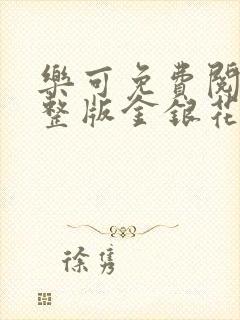 樂可免費閱
整版金銀花
徐雋